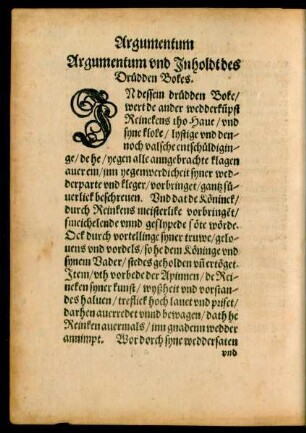 Argumentum
Argumentum vnd Jnholdt des
Drüdden Bokes.
JN dessem drüdden Boke/
wert de ander wedderküpst
Reinckens tho Haue/ vnd
syne kloke/ lystige vnd den-
noch valsche entschüldigin-
ge/ de he/ yegen alle anngebrachte klagen
auer em/ jnn yegenwerdicheit syner wed-
derparte vnd kleger/ vorbringet/ gantz sü-
uerlick beschreuen. Vnd dat de Köninck/
durch Reinkens meisterlike vorbringēt/
smeichelende vnnd geslypede söte wörde.
Ock durch vortellinge syner truwe/ gelo-
uens vnd vordels/ so he dem Köninge vnd
synem Vader/ stedes geholden vn̄ ertöget
Jtem/ vth vorbede der Apinnen/ de Rei-
neken syner kunst/ wyßheit vnd vorstan-
des haluen/ treflick hoch lauet vnd priset/
darhen auerredet vnnd bewagen/ dath he
Reinken auermals/ jnn gnadenn wedder
annimpt. Wor dorch syne weddersaten
vnd